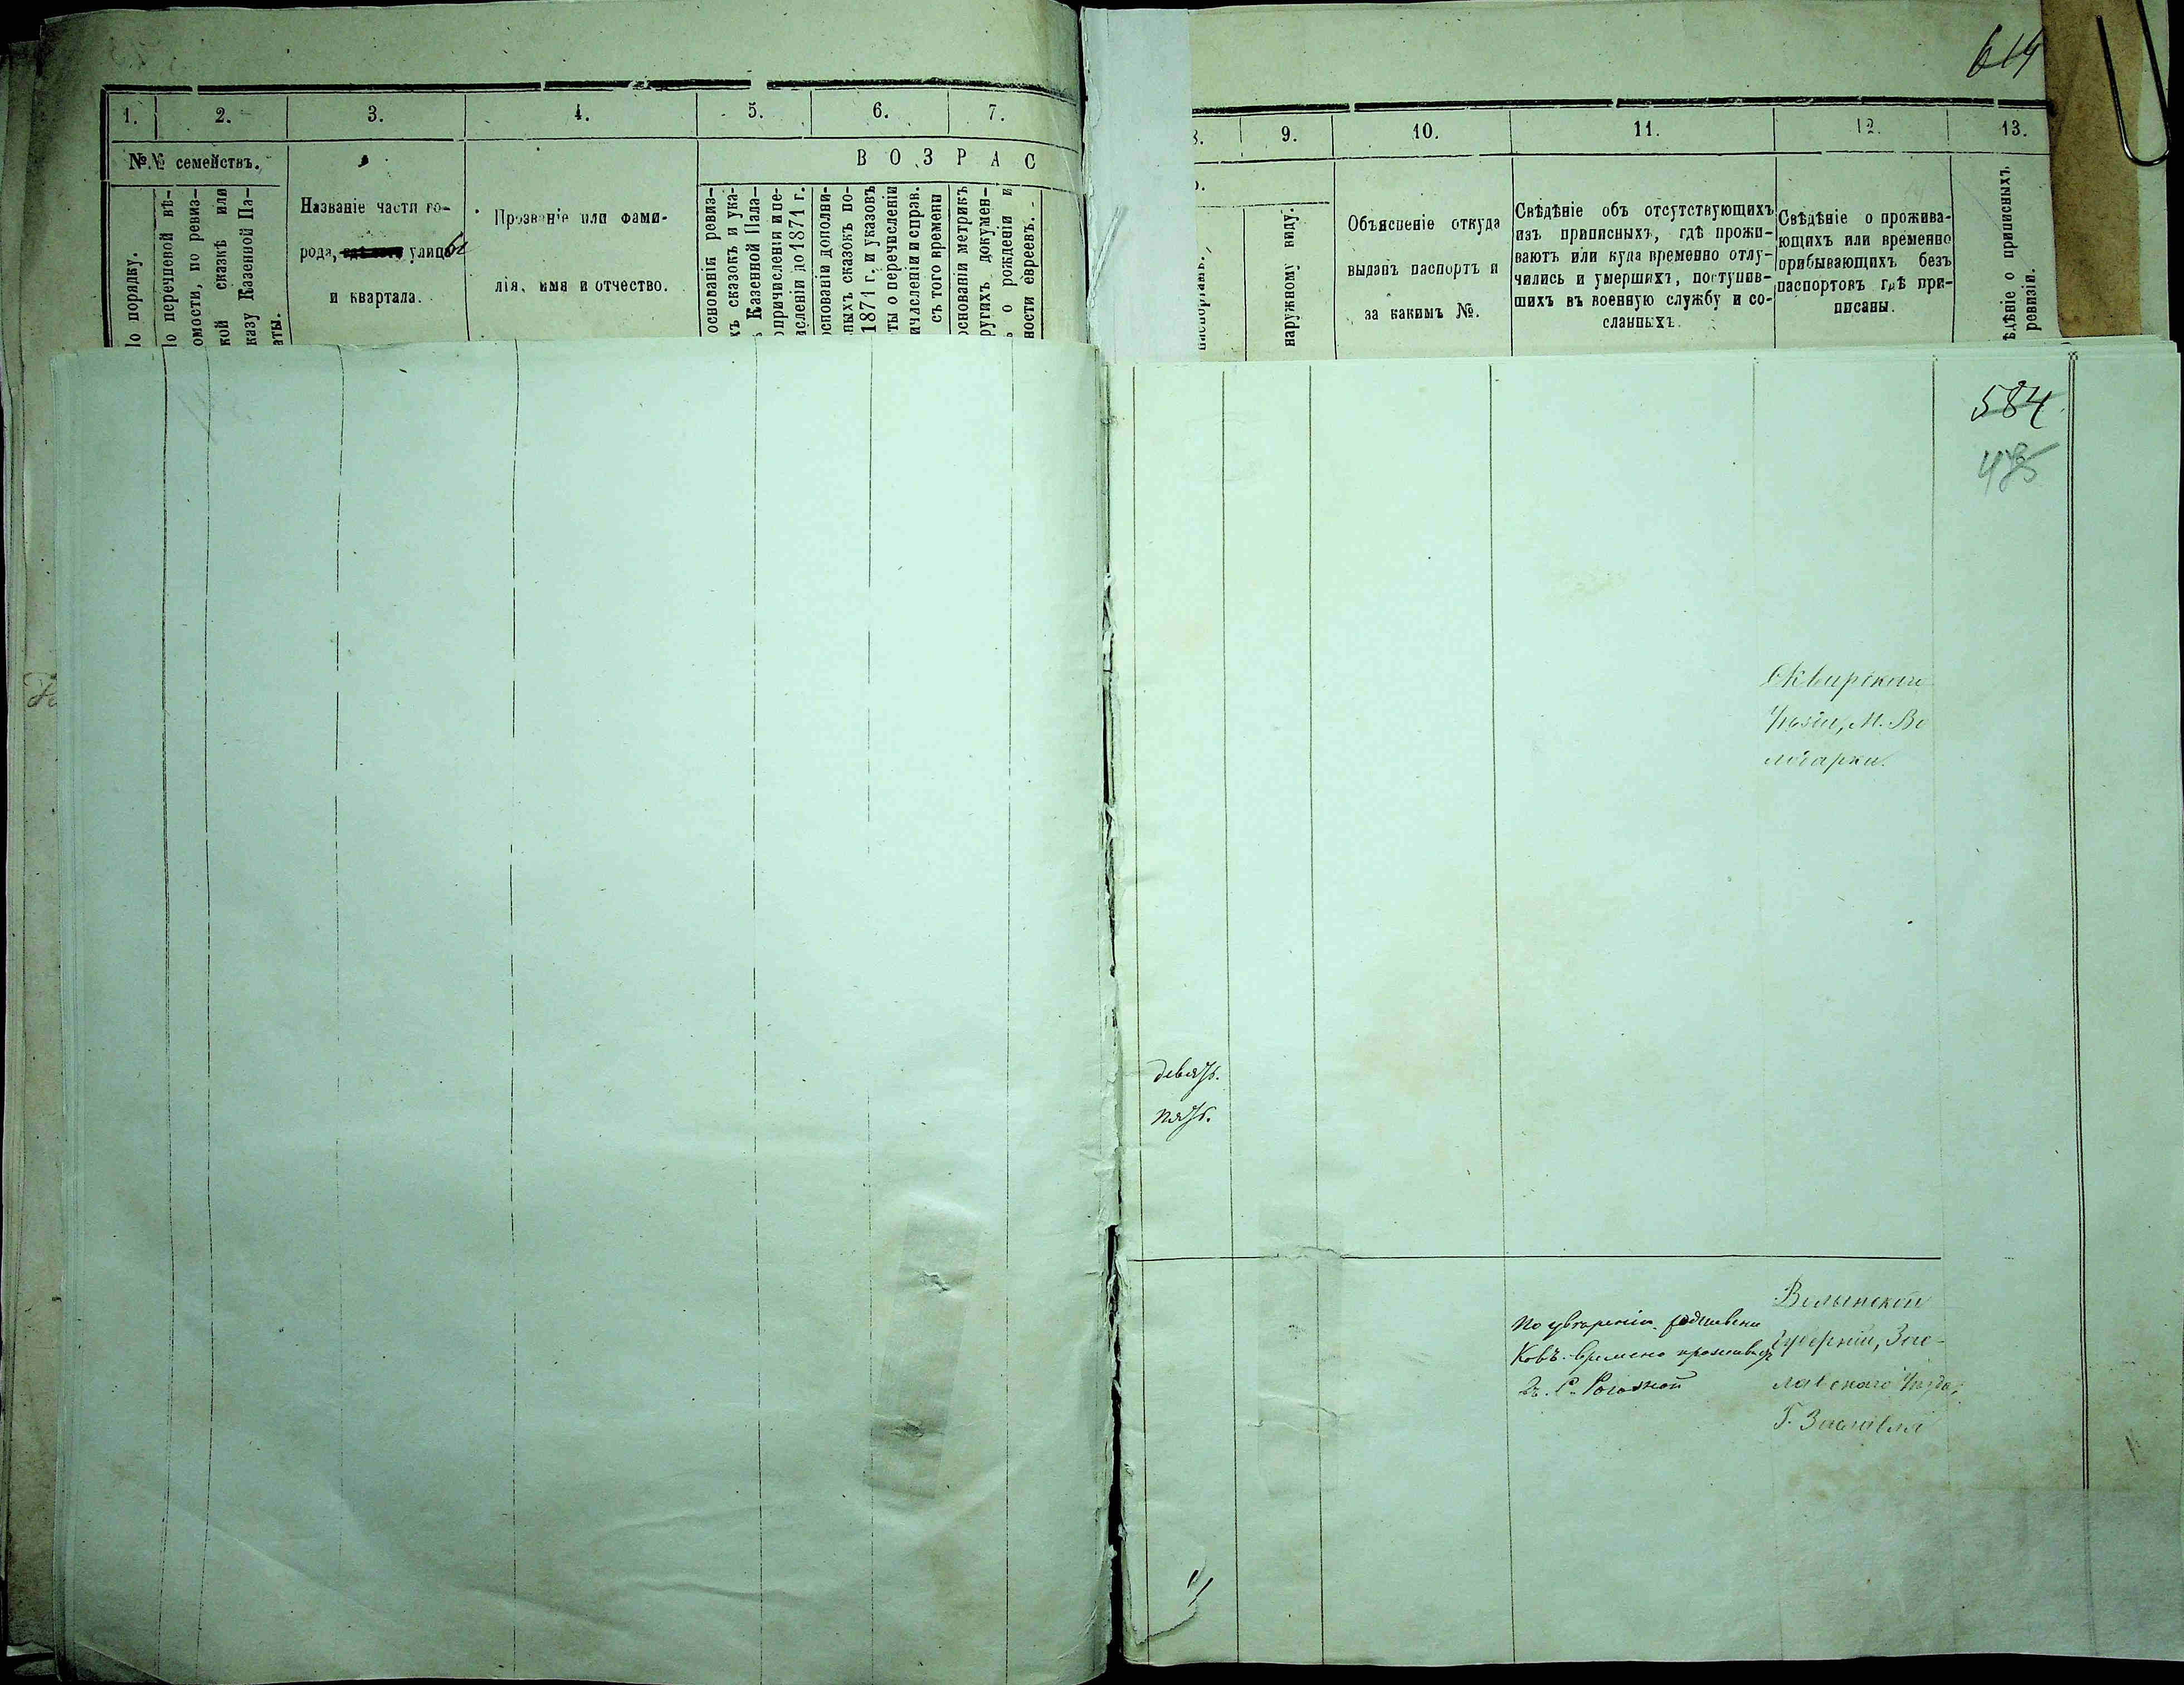 614
1.
2.
3.
4.
5.
6.
7.
№№ семействъ.
В О З Р А С
о порядку.
о перечневой вѣ-
омости, по ревиз-
кой сказкѣ или
казу Казенной Па-
аты.
Названіе части го-
рода, улицы
и квартала.
Прозваніе или фами-
лія, имя и отчество.
основаніи ревиз-
хъ сказокъ и ука-
ъ Казенной Пала-
опричисленіи и пе-
исленіи до 1871 г.
основаніи дополни-
ныхъ сказокъ по-
1871 г. и указовъ
ты о перечисленіи
ичисленіи и справ.
съ того времени
основаніи метрикъ
ругихъ докумен-
ъ о рожденіи и
ности евреевъ.
8.
9.
10.
11.
12.
13.
наружному виду.
Объясненіе откуда
выданъ паспортъ и
за какимъ №.
Свѣдѣніе объ отсутствующихъ
изъ приписныхъ, гдѣ прожи-
ваютъ или куда временно отлу-
чились и умершихъ, поступив-
шихъ въ военную службу и со-
сланныхъ.
Свѣдѣніе о прожива-
ющихъ или временно
прибывающихъ безъ
паспортовъ гдѣ при-
писаны.
ѣдѣніе о приписныхъ
ревизіи.
584
Сквирскаго
Уѣзда, М. Во
лодарки.
девять.
пять.
По увѣренію родственни
ковъ временно проживаетъ
въ С. Рогозной
Волынской
Губерніи, Зас-
лавскаго Уѣзда,
Г. Заславля